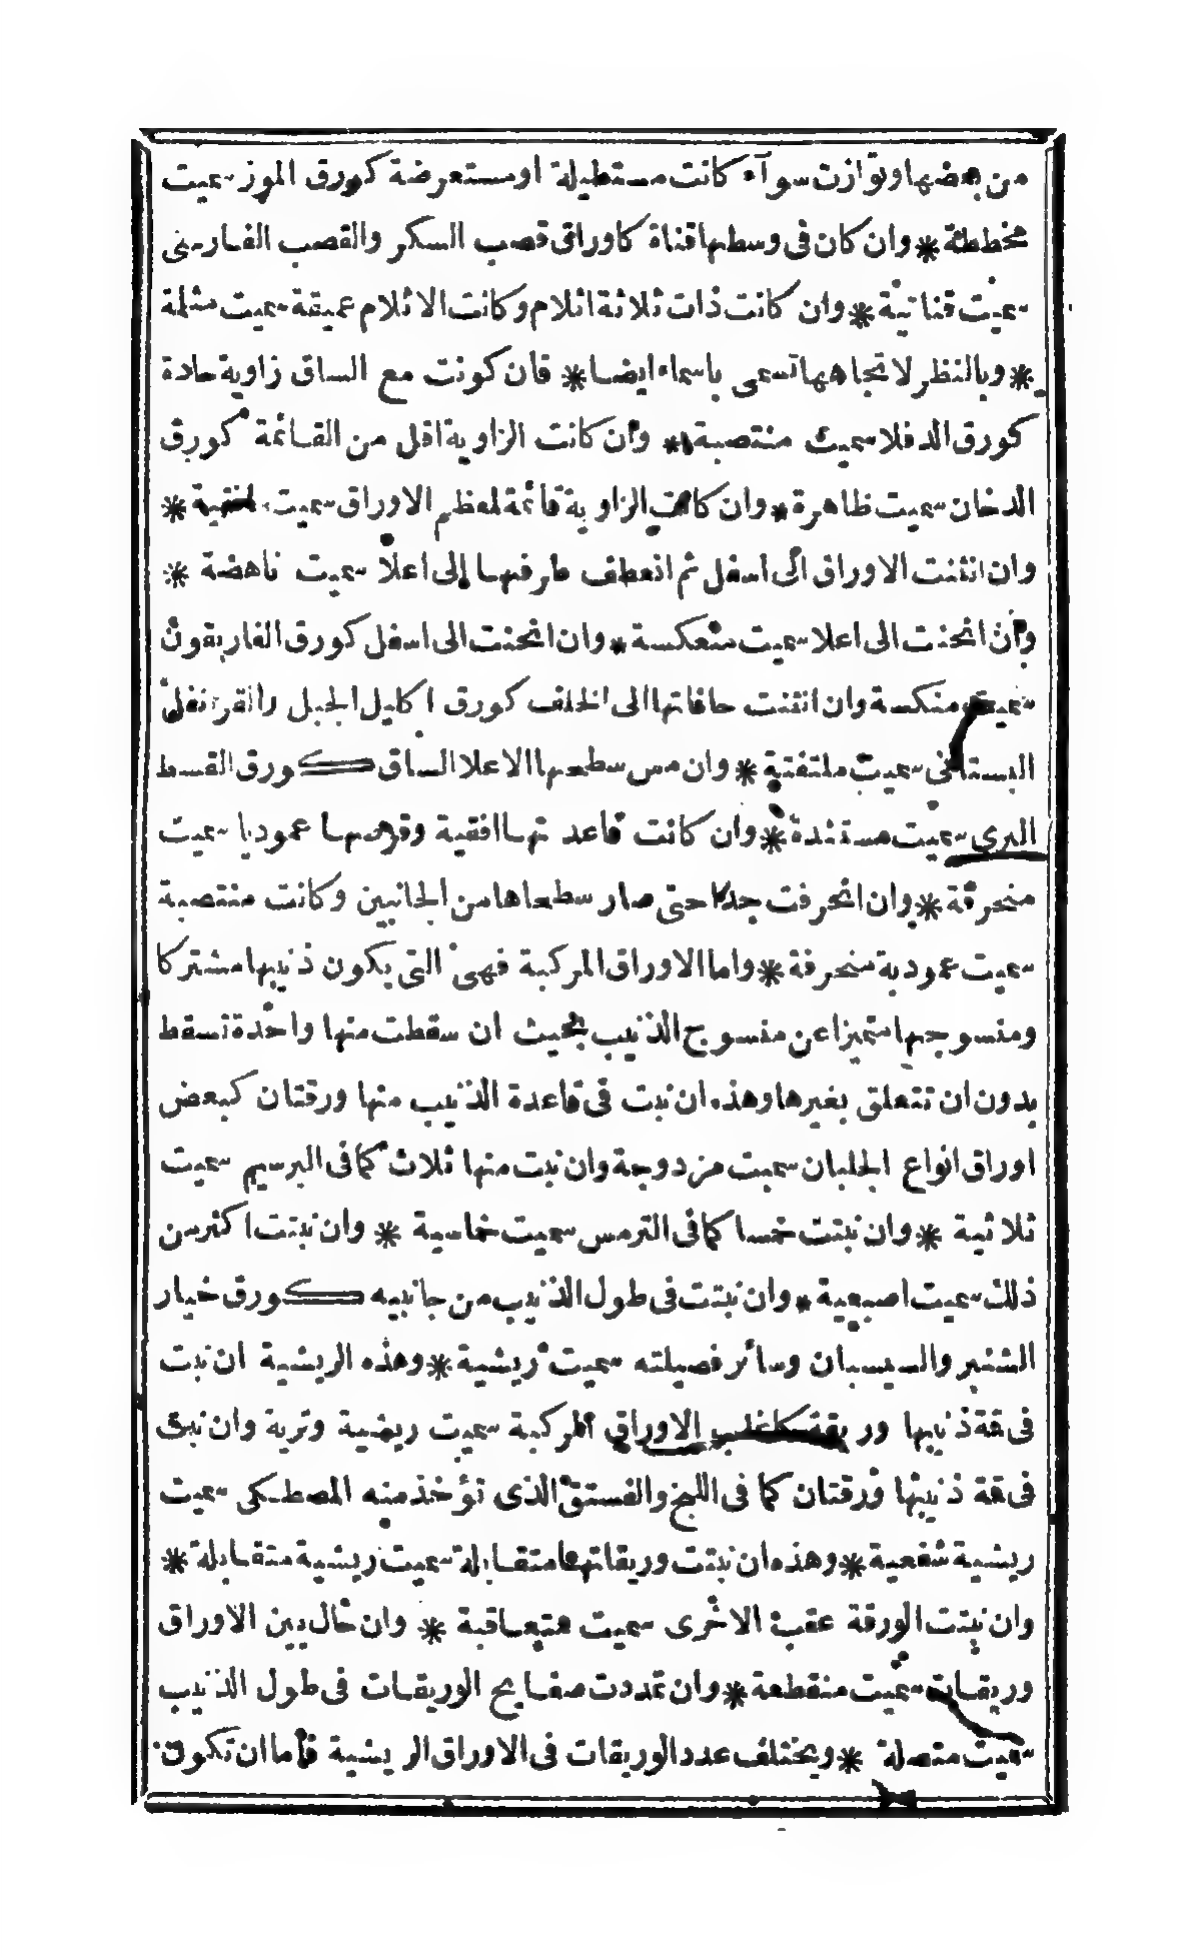 من بعضها وتوازت سوآء كانت مستطيلة او مستعرضة كورق الموز سميت
مخططة * وان كان فى وسطها قناة كاوراق قصب السكر والقصب الفارسى
سميت قناتية * وان كانت ذات ثلاثة اثلام وكانت الاثلام عميقة سميت مثلمة
* وبالنظر لاتجاهها تسمى باسماء ايضا * فان كونت مع الساق زاوية حادة
كورق الدفلا سميت منتصبة * وان كانت الزاوية اقل من القائمة كورق
الدخان سميت ظاهرة * وان كانت الزاوية قائمة لمعظم الاوراق سميت افقية *
وان انثنت الاوراق الى اسفل ثم انعطف طرفها إلى اعلا سميت ناهضة *
وان انحنت الى اعلا سميت منعكسة * وان انحنت الى اسفل كورق الغاريقون
سميت منكسة وان انثنت حافاتها الى الخلف كورق اكليل الجبل والقرنفل
البستانى سميت ملتفتية * وان مس سطحها الاعلا الساق كورق القسط
البرى سميت مستندة * وان كانت قاعدتها افقية وقرصها عموديا سميت
منحرفة * وان انحرفت جدا حتى صار سطحاها من الجانبين وكانت منتصبة
سميت عمودية منحرفة * واما الاوراق المركبة فهى التى يكون ذنيبها مشتركا
ومنسوجها متميزا عن منسوج الذنيب بحيث ان سقطت منها واحدة تسقط
بدون ان تتعلق بغيرها وهذه ان نبت فى قاعدة الذنيب منها ورقتان كبعض
اوراق انواع الجلبان سميت مزدوجة وان نبت منها ثلاث كما فى البرسيم سميت
ثلاثية * وان نبتت خمسا كما فى الترمس سميت خماسية * وان نبتت اكثر من
ذلك سميت اصبعية * وان نبتت فى طول الذنيب من جانبيه كورق خيار
الشنبر والسيسبان وسائر فصيلته سميت ريشية * وهذه الريشية ان نبت
فى قة ذنيبها وريقة كاغلب الاوراق المركبة سميت ريشية وترية وان نبتى
فى قة ذنيبها ورقتان كما فى اللبخ والفستق الذى تؤخذ منه المصطكى سميت
ريشية شفعية * وهذه ان نبتت وريقاتها متقابلة سميت ريشية متقابلة *
وان نبتت الورقة عقب الاخرى سميت متعاقبة * وان خال بين الاوراق
وريقات سميت منقطعة * وان تمددت صفايح الوريقات فى طول الذنيب
سميت متصلة * ويختلف عدد الوريقات فى الاوراق الريشية فأما ان تكون